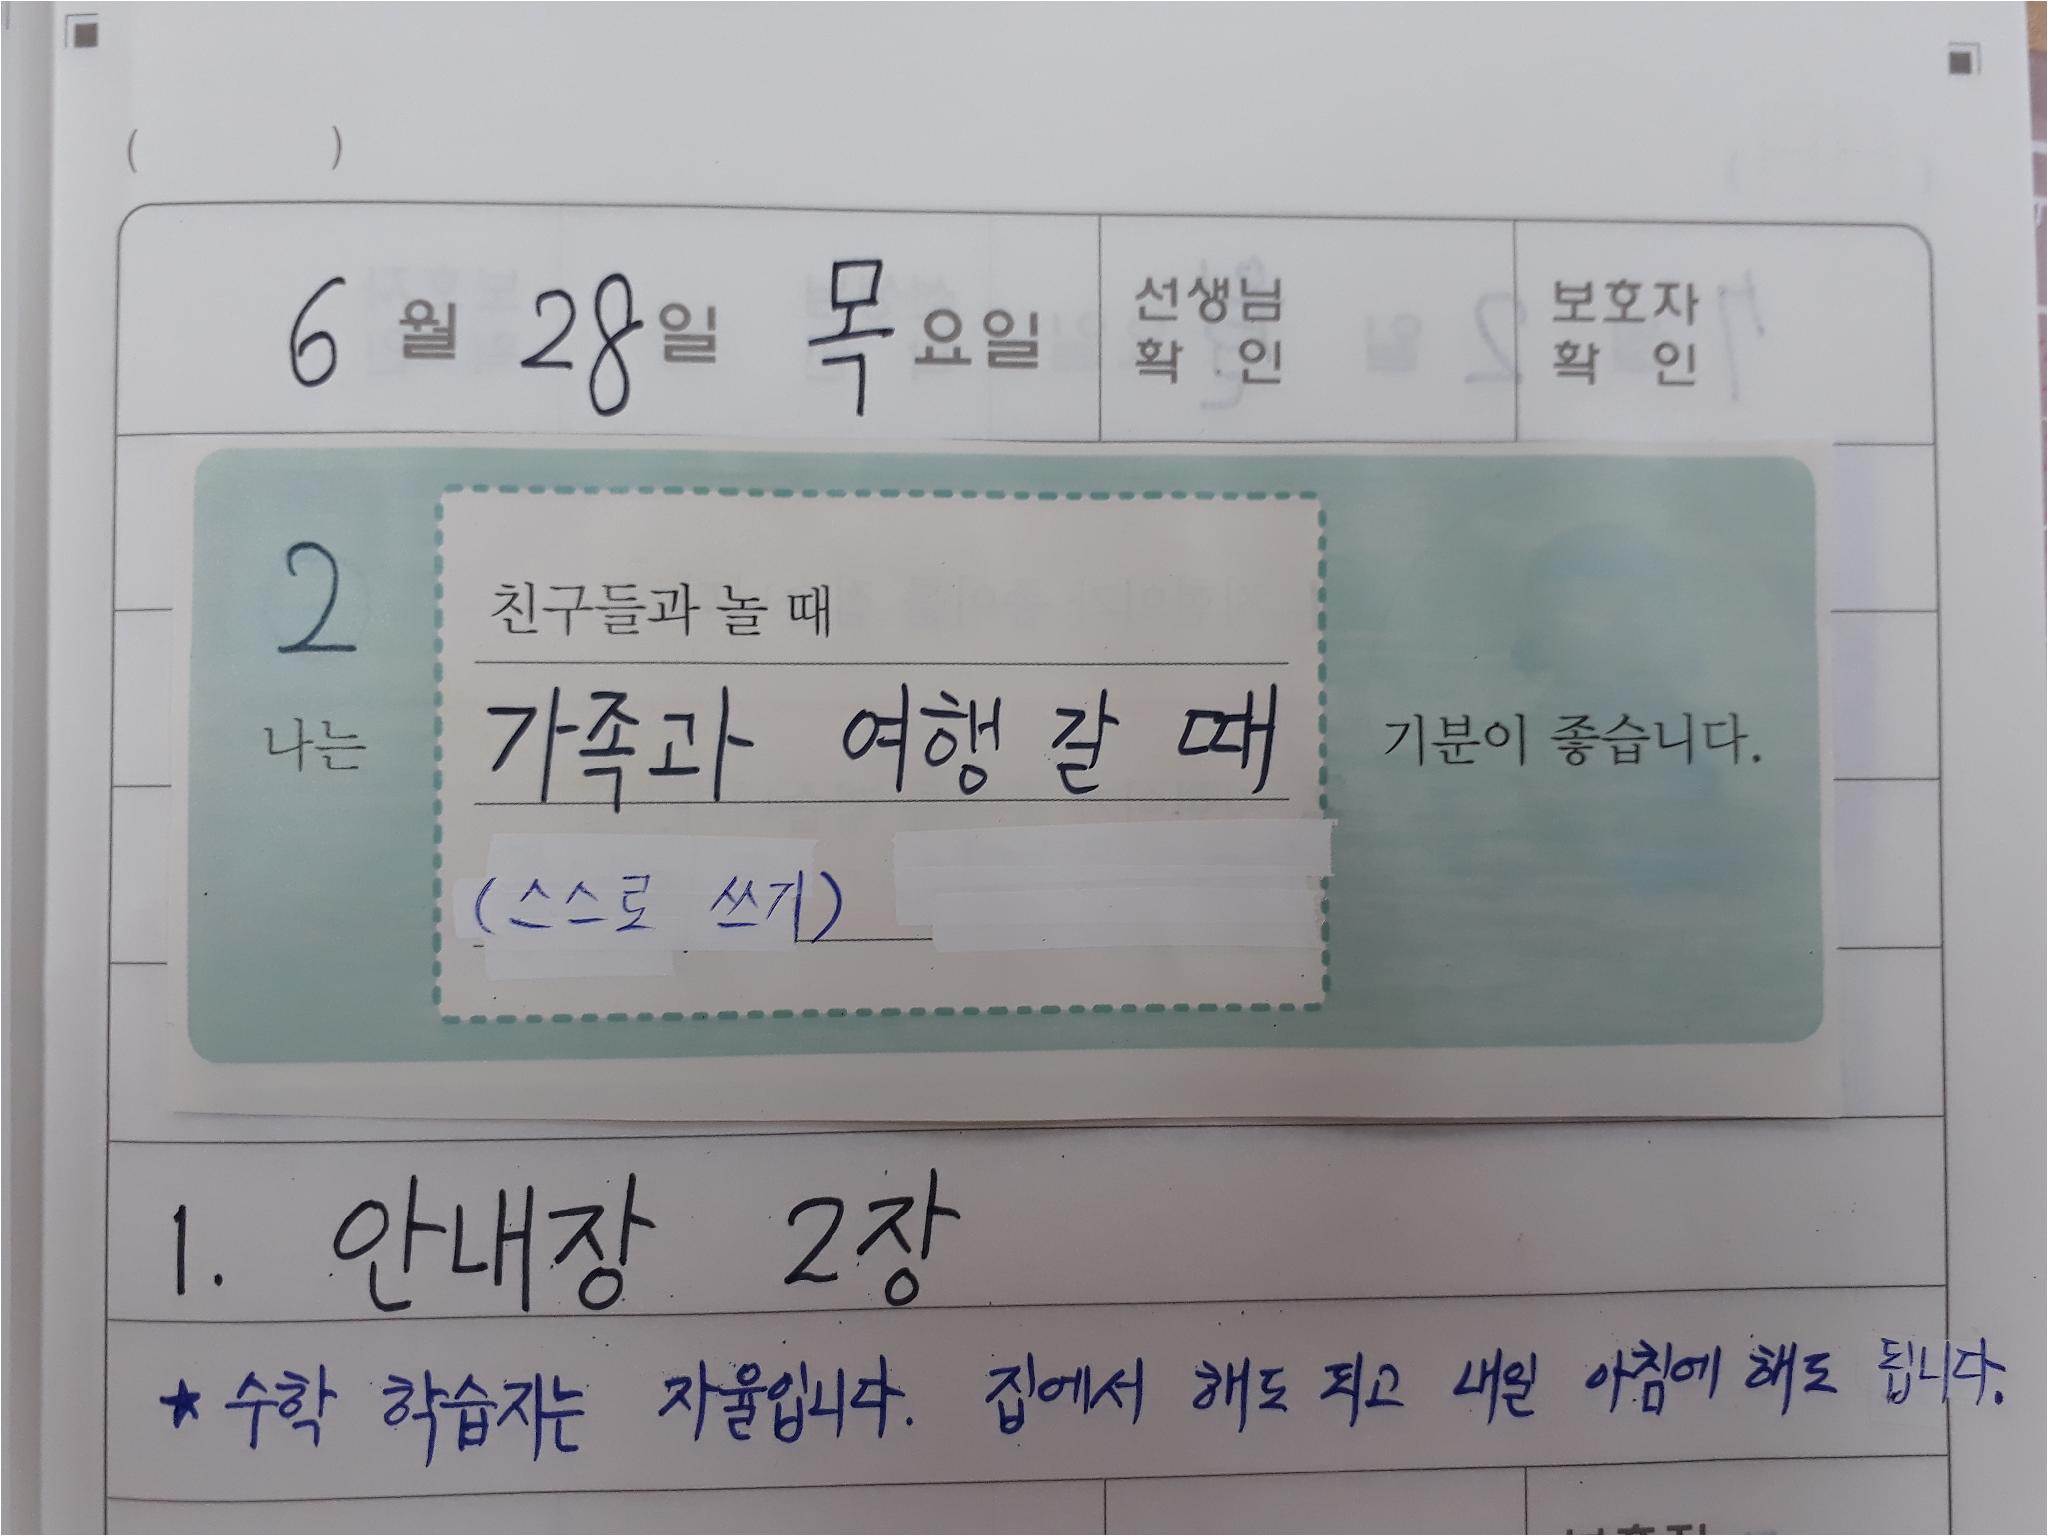 ( )
6월 28일 목요일 선생님 확인 보호자 확인
2
친구들과 놀 때
나는 가족과 여행 갈 때 기분이 좋습니다.
(스스로 쓰기)
1. 안내장 2장
★ 수학 학습지는 자율입니다. 집에서 해도 되고 내일 아침에 해도 됩니다.